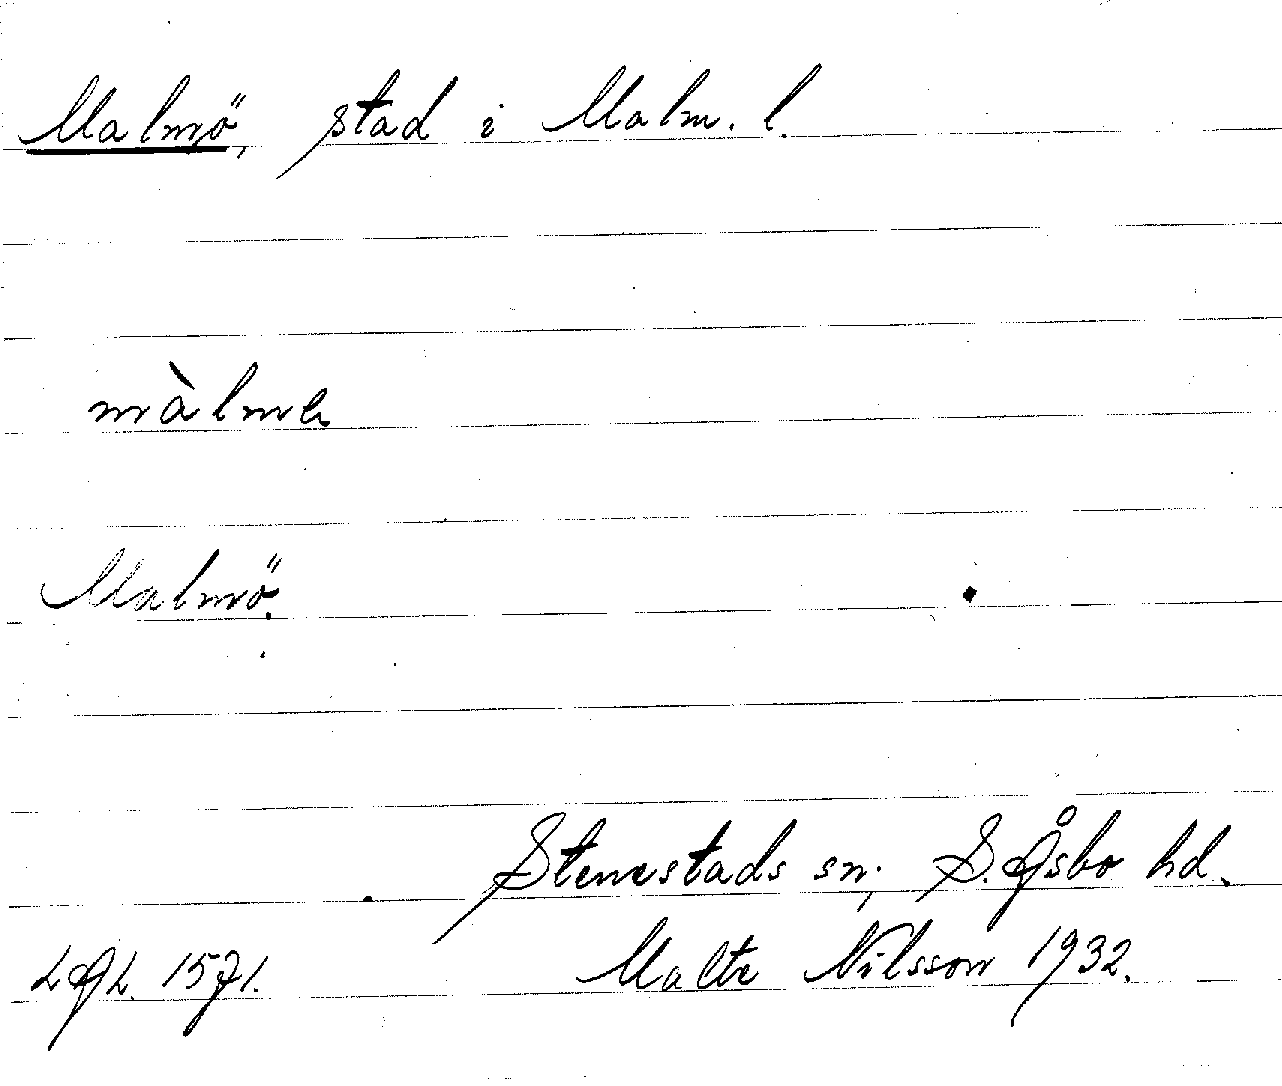 Malmö, stad i Malm. l.
màlme
Malmö.
Stenestads sn; S. Åsbo hd.
LAL. 1571. Malte Nilsson 1932.